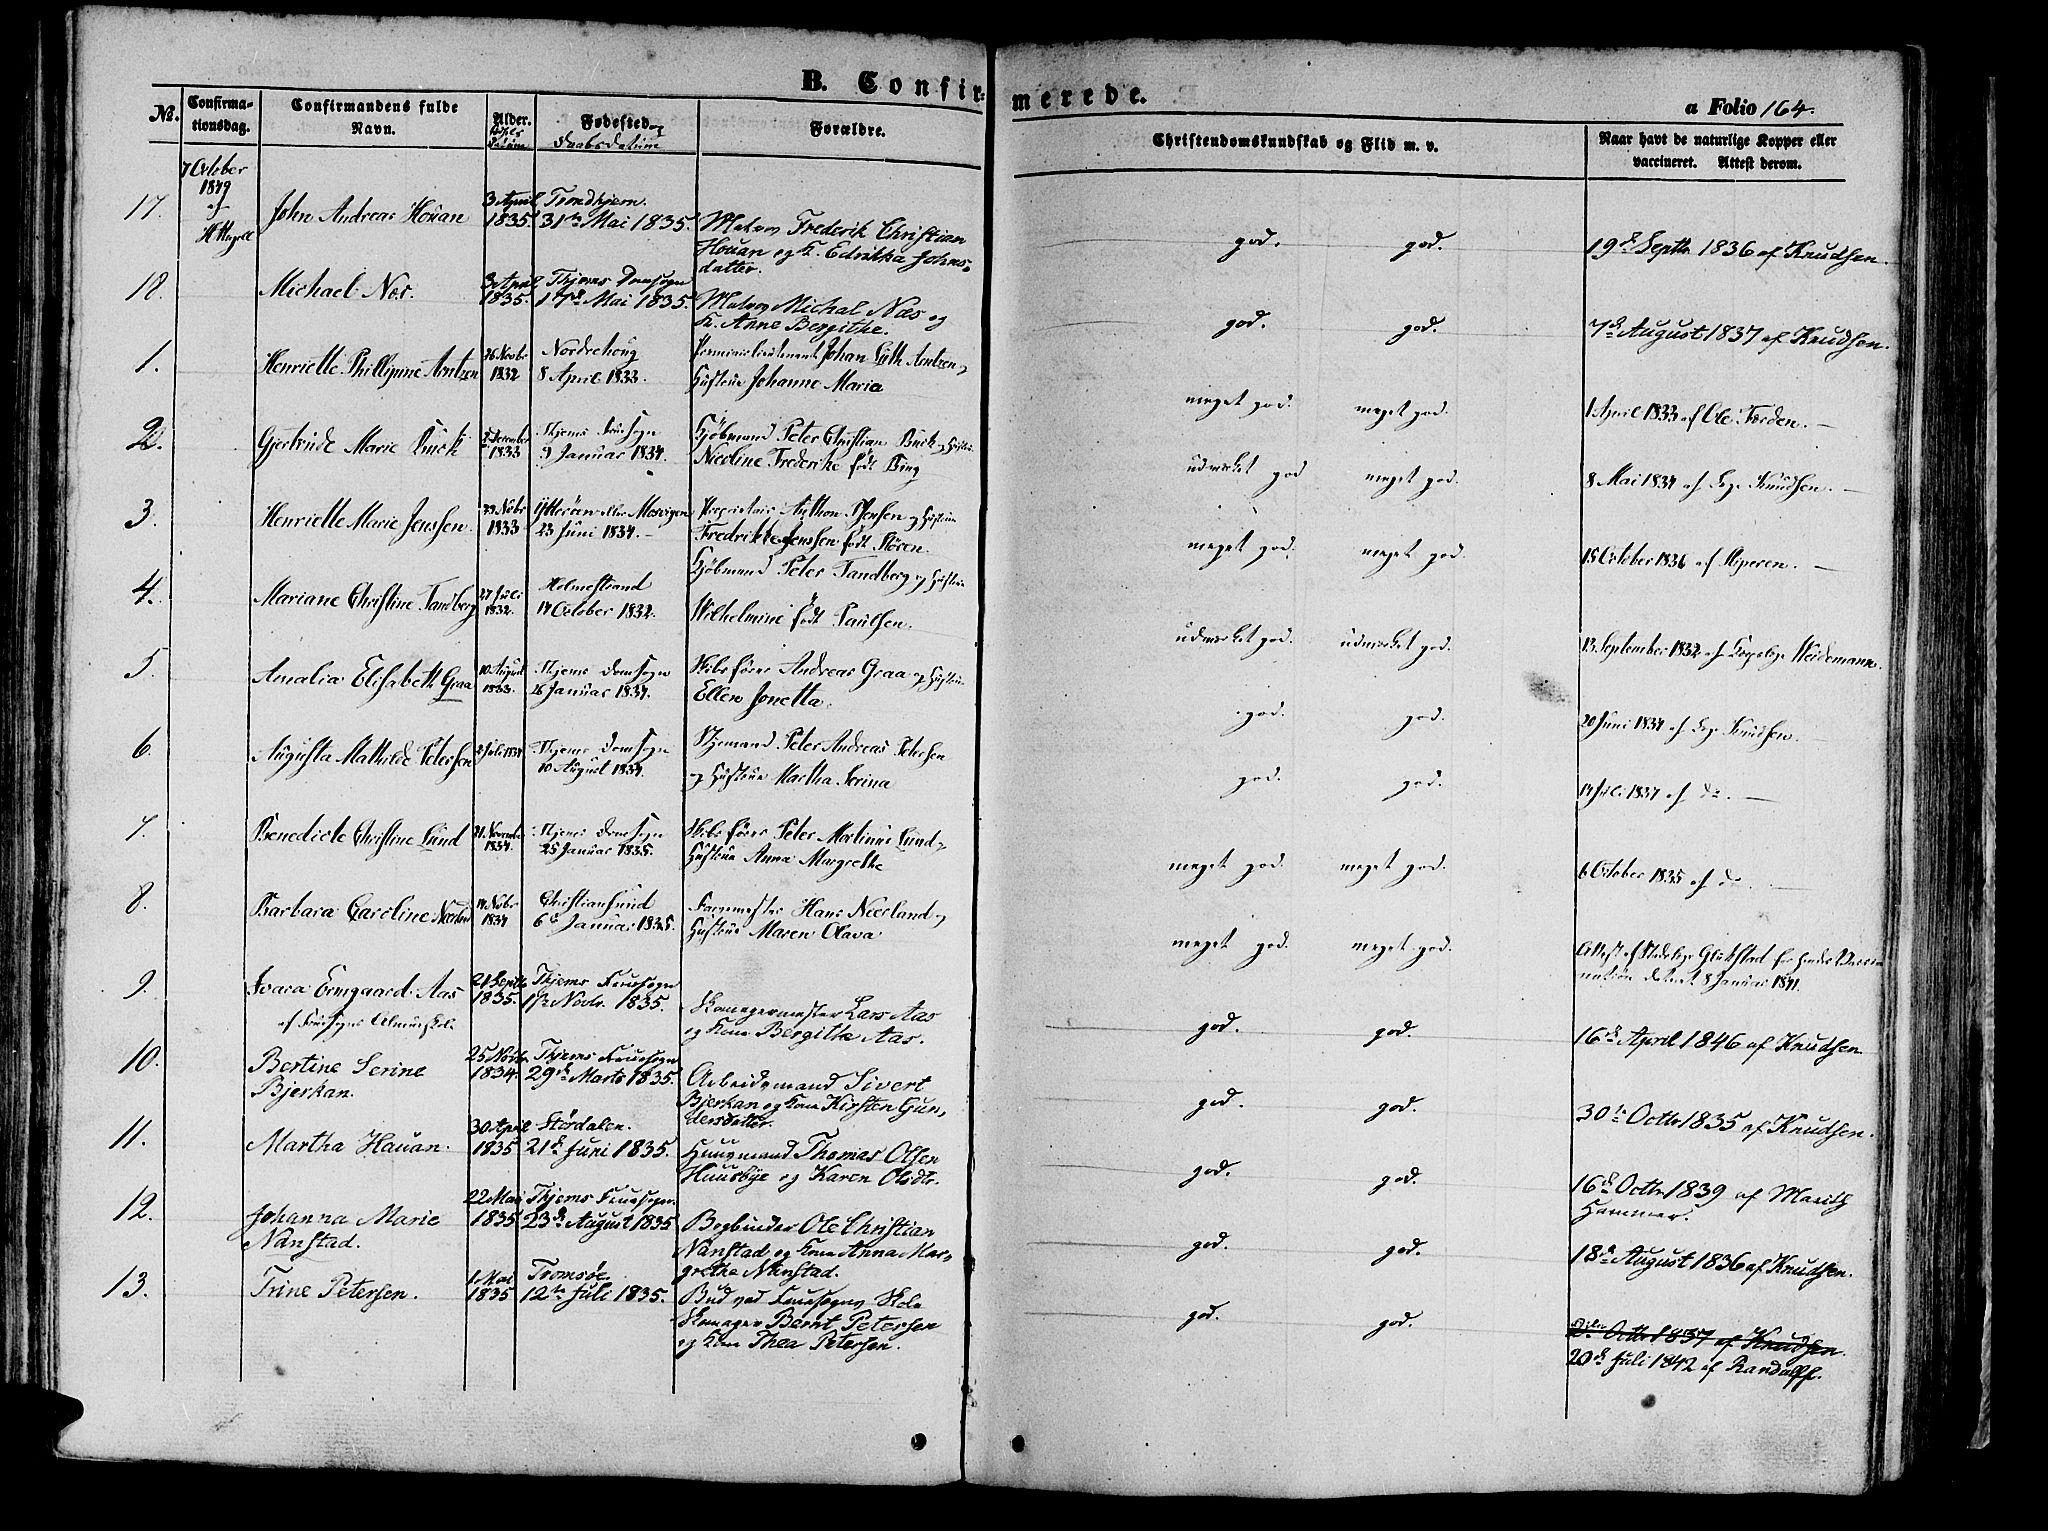 B. Confir-
merede.
a Folio 164.
No.
Confirma-
tionsdag.
Confirmandens fulde
Navn.
Alder.
Datum
Fødested og
Daabsdatum
Forældre.
Christendomskundskab og Flid m. v.
Naar havt de naturlige Kopper eller
vaccineret. Attest derom.
7 October
1849
af
17. John Andreas Houan 3 April 1835. Trondhjem. 31te Mai 1835. Matros Frederik Christian
Houan og K. Edrikka Johns-
datter.
god. god. 19de Septbr 1836 af Knudsen.
18. Michael Næs. 3 April 1835. Thjems Domsogn 17de Mai 1835. Matros Michal Næs og
K. Anne Bergithe.
god. god. 7de August 1837 af Knudsen.
1. Henriette Phillipine Arntzen 26 Novbr 1832 Nordrehoug 8 April 1833. Premierlieutenant Johan Lüth Arntzen og
Hustrue Johanne Maria
meget god. meget god. 1 April 1833 af Ole Forden.
2. Gjertrude Marie Buck 5 December 1833 Thjems Fruesogn 9 Januar 1834. Kjøbmand Peter Christian Buck og Hustrue
Nicoline Frederike født Bing
udmærket god meget god. 8 Mai 1834 af Knudsen.
3. Henriette Marie Jenssen. 29 Nobr 1833 Ytterøen eller Mosvigen 23 Juni 1834. Proprietair Anthon Jenssen og Hustrue
Fredrikke Jenssen født Støren.
meget god. meget god. 15 October 1836 af
4. Mariane Christine Tandberg 27 Juli 1832. Holmestrand 14 October 1832. Kjøbmand Peter Tandberg og Hustrue
Wilhelmine født Paulsen.
udmærket god. udmærket god. 13 September 1832 af Weidemann.
5. Amalia Elisabeth Graa 10 August 1833. Thjems Domsogn 26 Januar 1834. Skibsfører Andreas Graa og Hustrue
Ellen Jonetta.
god. god. 20 Juni 1834 af Knudsen.
6. Augusta Mathilde Petersen 2 Juli 1834 Thjems Domsogn 10 August 1834. Styrmand Peter Andreas Petersen
og Hustrue Martha Serina
god. god. 14 Juli 1837 af do.
7. Benedicte Christine Lund 21 November 1834. Thjems Domsogn 25 Januar 1835. Skibsfører Peter Martinus Lund og
Hustrue Anna Margrethe
meget god. meget god. 6 October 1835 af do.
8. Barbara Caroline Neerland 14 Nobr 1834 Christiansund 6te Januar 1835. Farvemester Hans Neerland og
Hustrue Maren Olava
meget god. meget god. Attest af Glükstad for hendes Vacci-
nation dateret 8 Januar 1841.
9. Ivara Ermgaard Aas 21 Septbr 1835. Thjems Fruesogn 1ste Novbr. 1835. Skomagermester Lars Aas
af Fruesogns Almueskole
og Kone Bergitta Aas.
god. god. 16de April 1846 af Knudsen.
10. Bertine Serine
Bjerkan. 25 Novbr 1834. Thjems Fruesogn 29de Marts 1835. Arbeidsmand Sivert
Bjerkan og Kone Kirsten Gun-
dersdatter.
god. god. 30te Octbr 1835 af Knudsen.
11. Martha Hauan. 30 April 1835 Størdalen. 21de Juni 1835. Huusmand Thomas Olsen
Huusbye og Karen Olsdtr.
god. god. 16de Octbr 1839 af Marith
Hammer.
12. Johanna Marie
Nanstad. 22 Mai 1835 Thjems Fruesogn. 23de August 1835 Bogbinder Ole Christian
Nanstad og Kone Anna Mar-
grethe Nanstad.
god. god. 18de August 1836 af Knudsen.
13. Trine Petersen. 1 Mai 1835 Tromsøe. 12te Juli 1835. Bud ved Fruesogns Skole
Skomager Bernt Petersen
og Kone Thea Petersen.
god. god. Octbr 1837 af Knudsen.
20de Juli 1842 af Randulff.